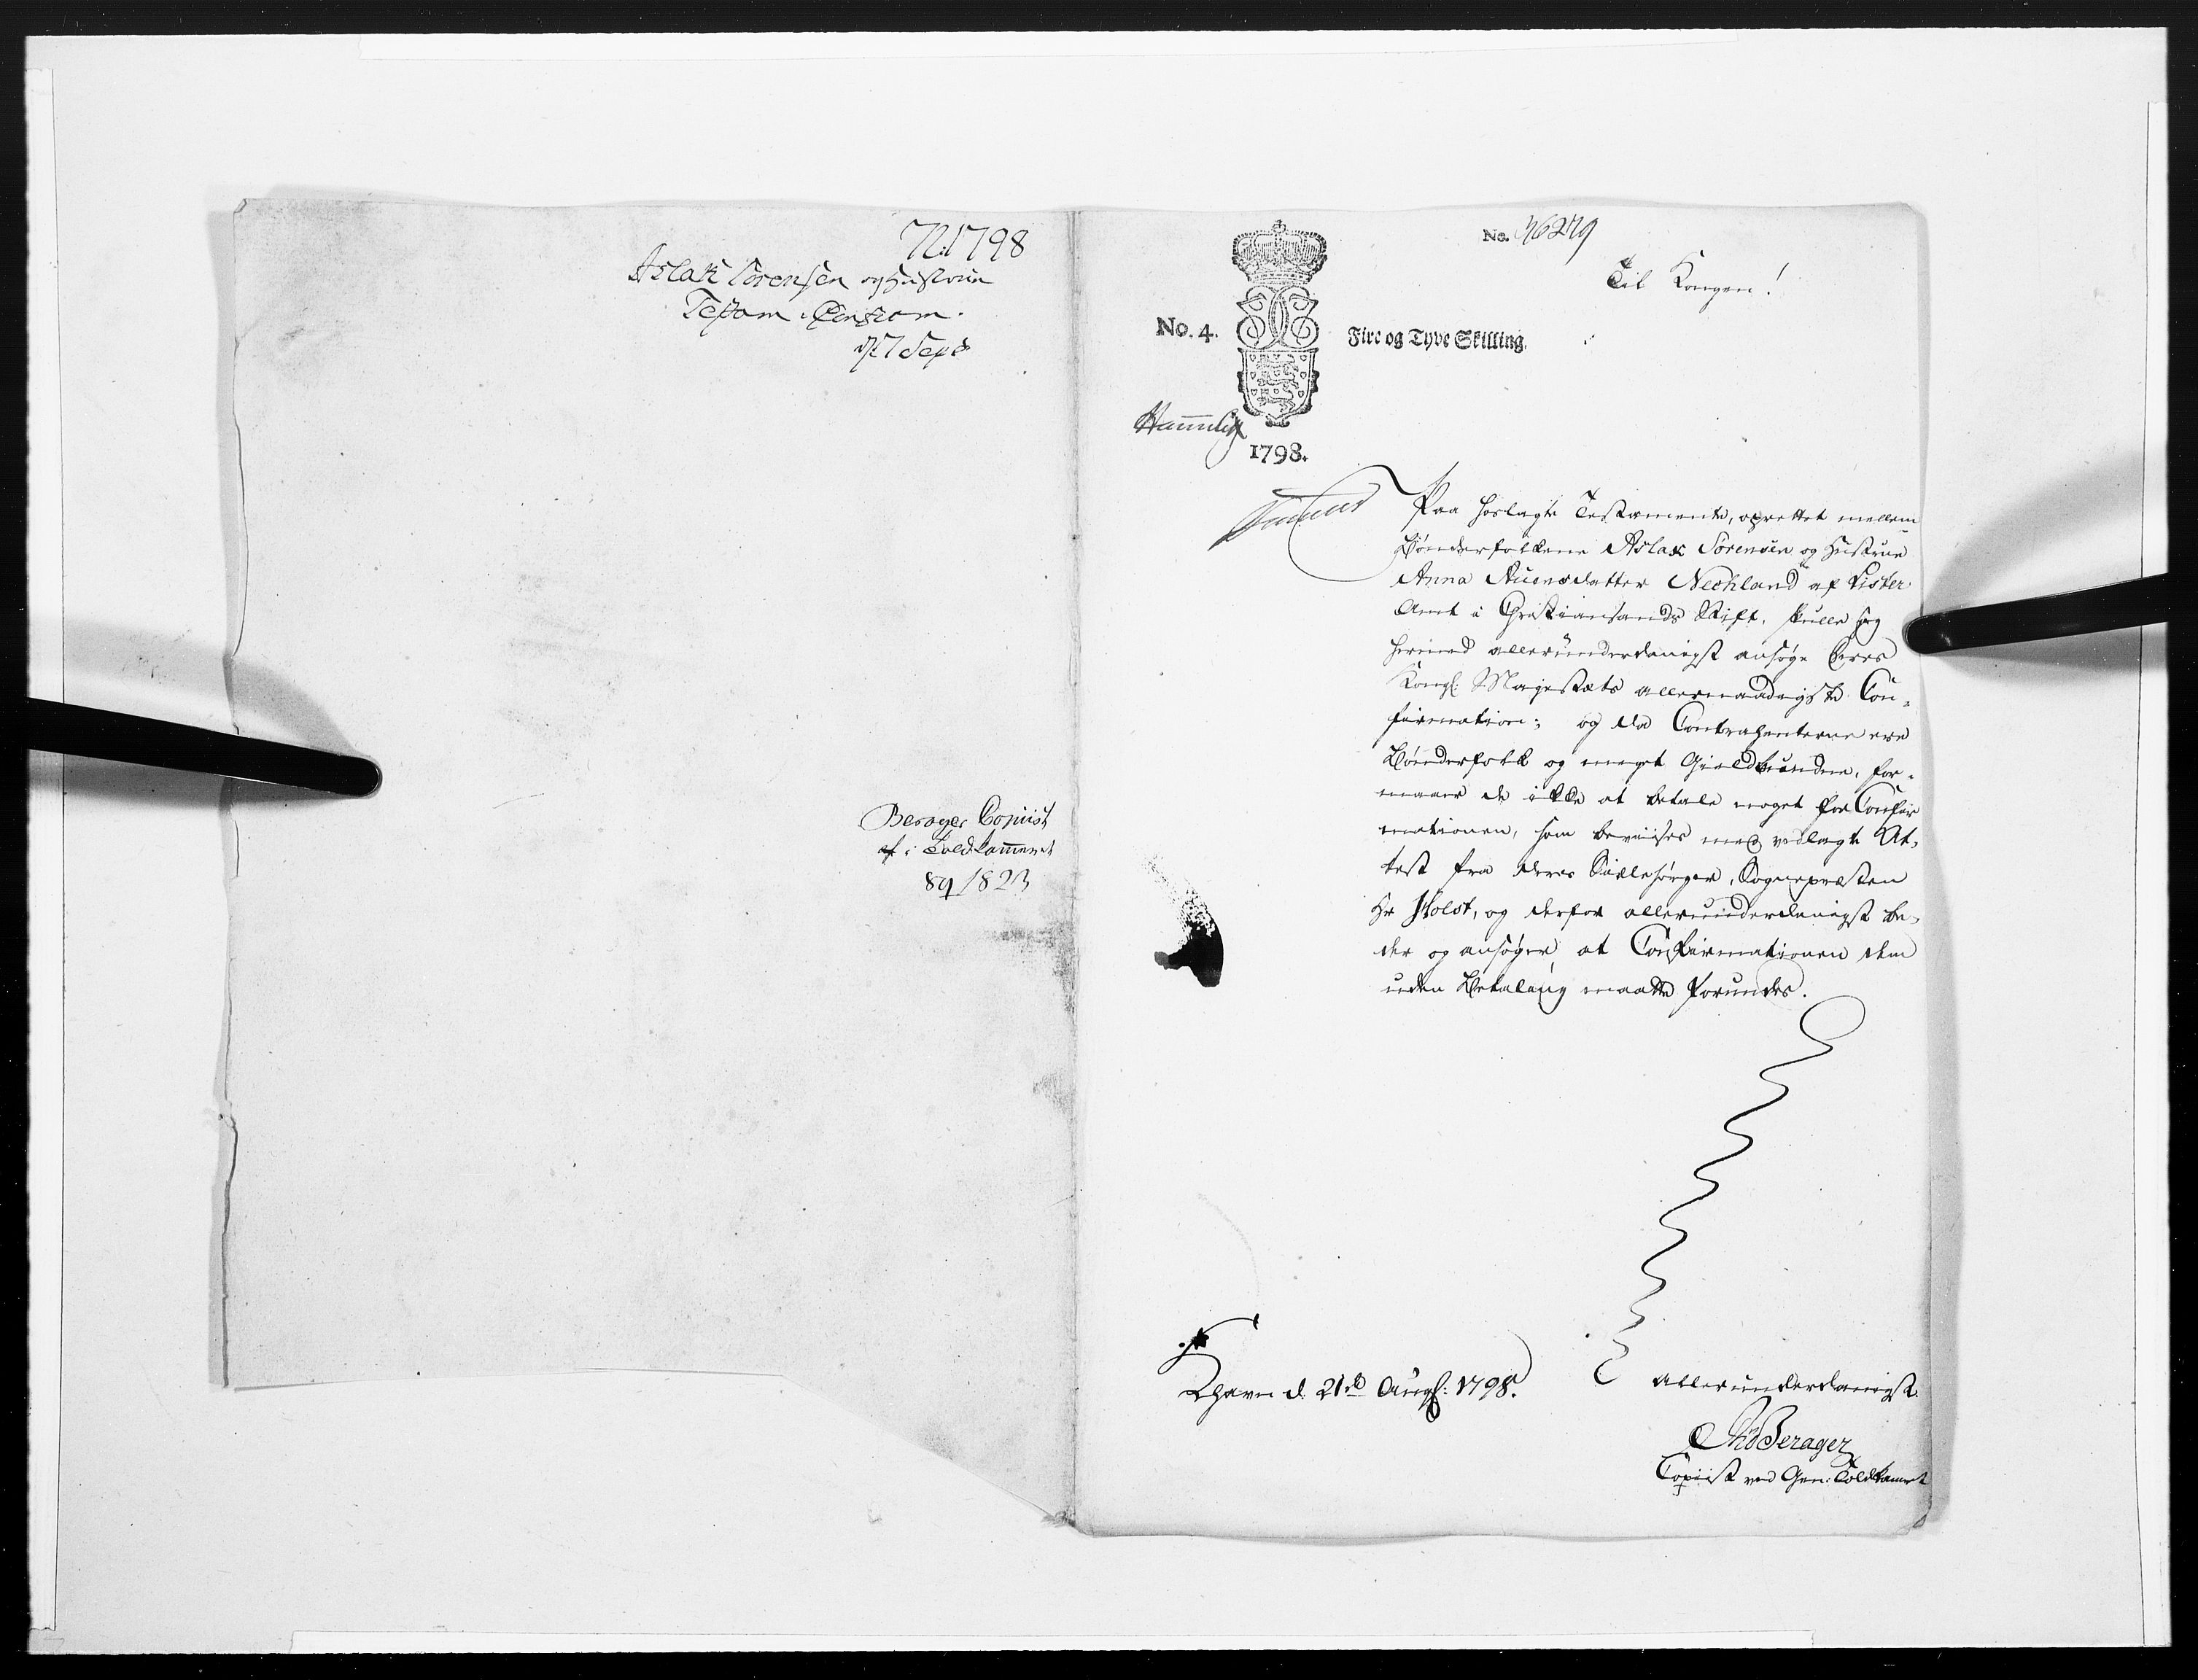 1798
Aslak Sørensen og Hustrue
Testam: Confirm.
d. 7 Sept
Berager Copiist
af i Toldkammeret
89/1823
No. 36279
Til Kongen!
No. 4.
Fire og Tyve Skilling.
1798.
Paa hoslagte Testamente, oprettet mellem
Bønderfolkene Aslak Sørensen og Hustrue
Anna Auensdatter Nechland af Lister
Amt i Christiansands Stift, skulle jeg
herved allerunderdanigst ansøge Deres
Kongl: Majestæts allernaadigste Con-
firmation; og da Contrahenterne ere
Bønderfolk og meget Gieldbundne, for-
maaer de ikke at betale noget for Confir
mationen, som beviises med vedlagte At-
test fra deres Siælesørger, Sognepræsten
Hr Holst, og derfor allerunderdanigst be-
der og ansøger, at Confirmationen dem
uden Betaling maatte forundes.
Khavn d. 21de Augst: 1798.
allerunderdanigst
Berager
Copiist ved Gen: Toldkamret